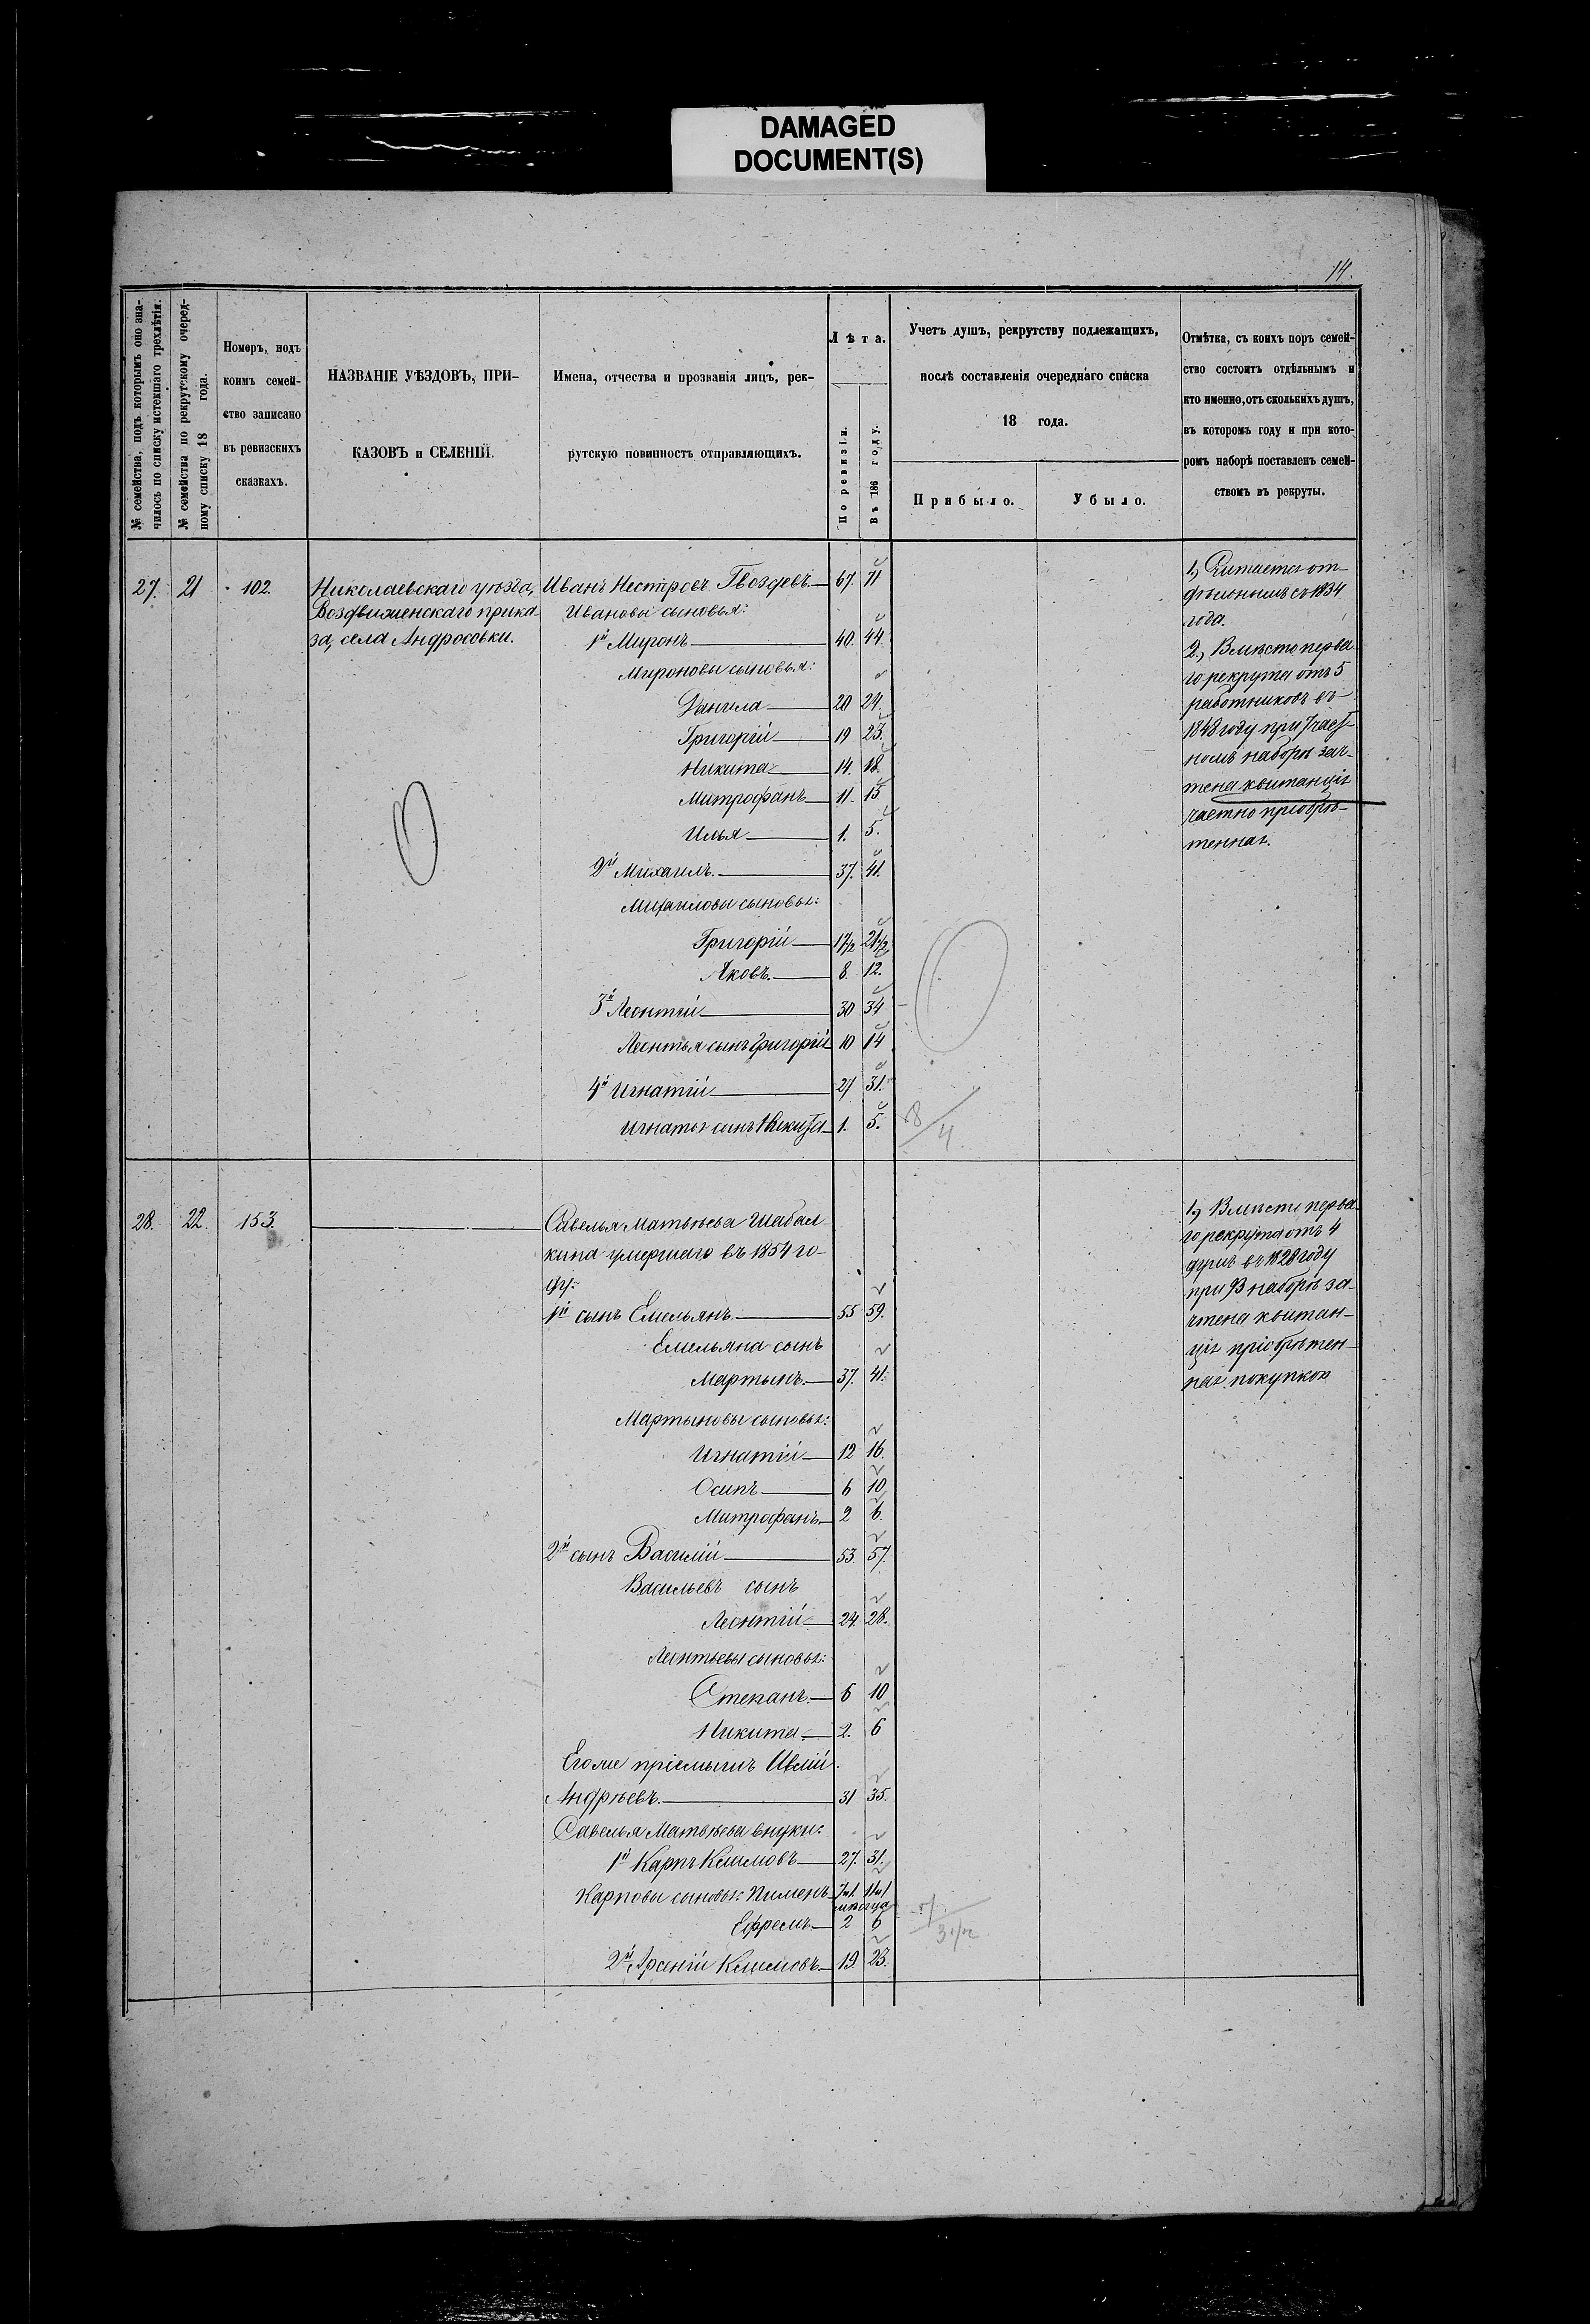 DAMAGED
DOCUMENT(S)
14.
№ семейства, подъ которымъ оно зна-
чилось по списку истекшаго трехлѣтія.
№ семейства по рекрутскому очеред-
ному списку 18 года.
Номеръ, подъ
коимъ семей-
ство записано
въ ревизскихъ
сказкахъ.
НАЗВАНІЕ УѢЗДОВЪ, ПРИ-
КАЗОВЪ и СЕЛЕНІЙ.
Имена, отчества и прозванія лицъ, рек-
рутскую повинность отправляющихъ.
Лѣта.
По ревизіи.
Въ 186 году.
Учетъ душъ, рекрутству подлежащихъ,
послѣ составленія очереднаго списка
18 года.
Прибыло.
Убыло.
Отмѣтка, съ коихъ поръ семей-
ство состоитъ отдѣльнымъ и
кто именно, отъ сколькихъ душъ,
въ которомъ году и при кото-
ромъ наборѣ поставленъ семей-
ствомъ въ рекруты.
27. 21 102. Николаевскаго уѣзда, Иванъ Нестеровъ Гвоздевъ 67. 71
Воздвиженскаго прика-
за, села Андросовки.
Ивановы сыновья:
1й Миронъ 40. 44.
Мироновы сыновья:
Данила 20 24.
Григорій 19 23.
Никита 14. 18.
Митрофанъ 11. 15
Илья 1. 5.
2й Михаилъ. 37. 41.
Михаиловы сыновья:
Григорій 17½ 21½
Яковъ. 8. 12.
3й Леонтій 30 34
Леонтья сынъ Григорій 10 14
4й Игнатій 27 31.
Игнатья сынъ Никита 1. 5.
8/4
1, Считается от-
дѣльнымъ съ 1834
года.
2, Вмѣсто перва-
го рекрута отъ 5
работниковъ въ
1848 году при 7 част-
номъ наборѣ зач-
тена квитанція
частно пріобрѣ-
тенная.
28. 22. 153. Савелья Матвѣева Шабал-
кина умершаго въ 1854 го-
ду:
1й сынъ Емельянъ 55 59.
Емельяна сынъ
Мартынъ. 37. 41.
Мартыновы сыновья:
Игнатій 12 16.
Осипъ 6 10.
Митрофанъ 2 6.
2й сынъ Василій 53. 57.
Васильевъ сынъ
Леонтій 24. 28.
Леонтьевы сыновья:
Степанъ. 6 10
Никита 2. 6
Его же пріемышъ
Андрѣевъ. 31 35.
Савелья Матвѣева внуки:
1й Карпъ Климовъ 27. 31.
Карповы сыновья: Пименъ
мѣсяца
Ефремъ 2 6
2й Арсеній Климовъ 19 23.
3½
1, Вмѣсто перва-
го рекрута отъ 4
душъ въ 1828 году
при 93 наборѣ за-
чтена квитан-
ція пріобрѣтен-
ная покупкою